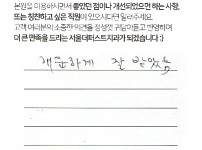 본원을 이용하시면서 좋았던 점이나 개선되었으면 하는 사항,
또는 칭찬하고 싶은 직원이 있으시다면 알려주세요.
고객 여러분의 소중한 의견을 정성껏 귀담아듣고 반영하여
더 큰 만족을 드리는 서울더테스트치과가 되겠습니다 :)
개운하게 잘 받았슴